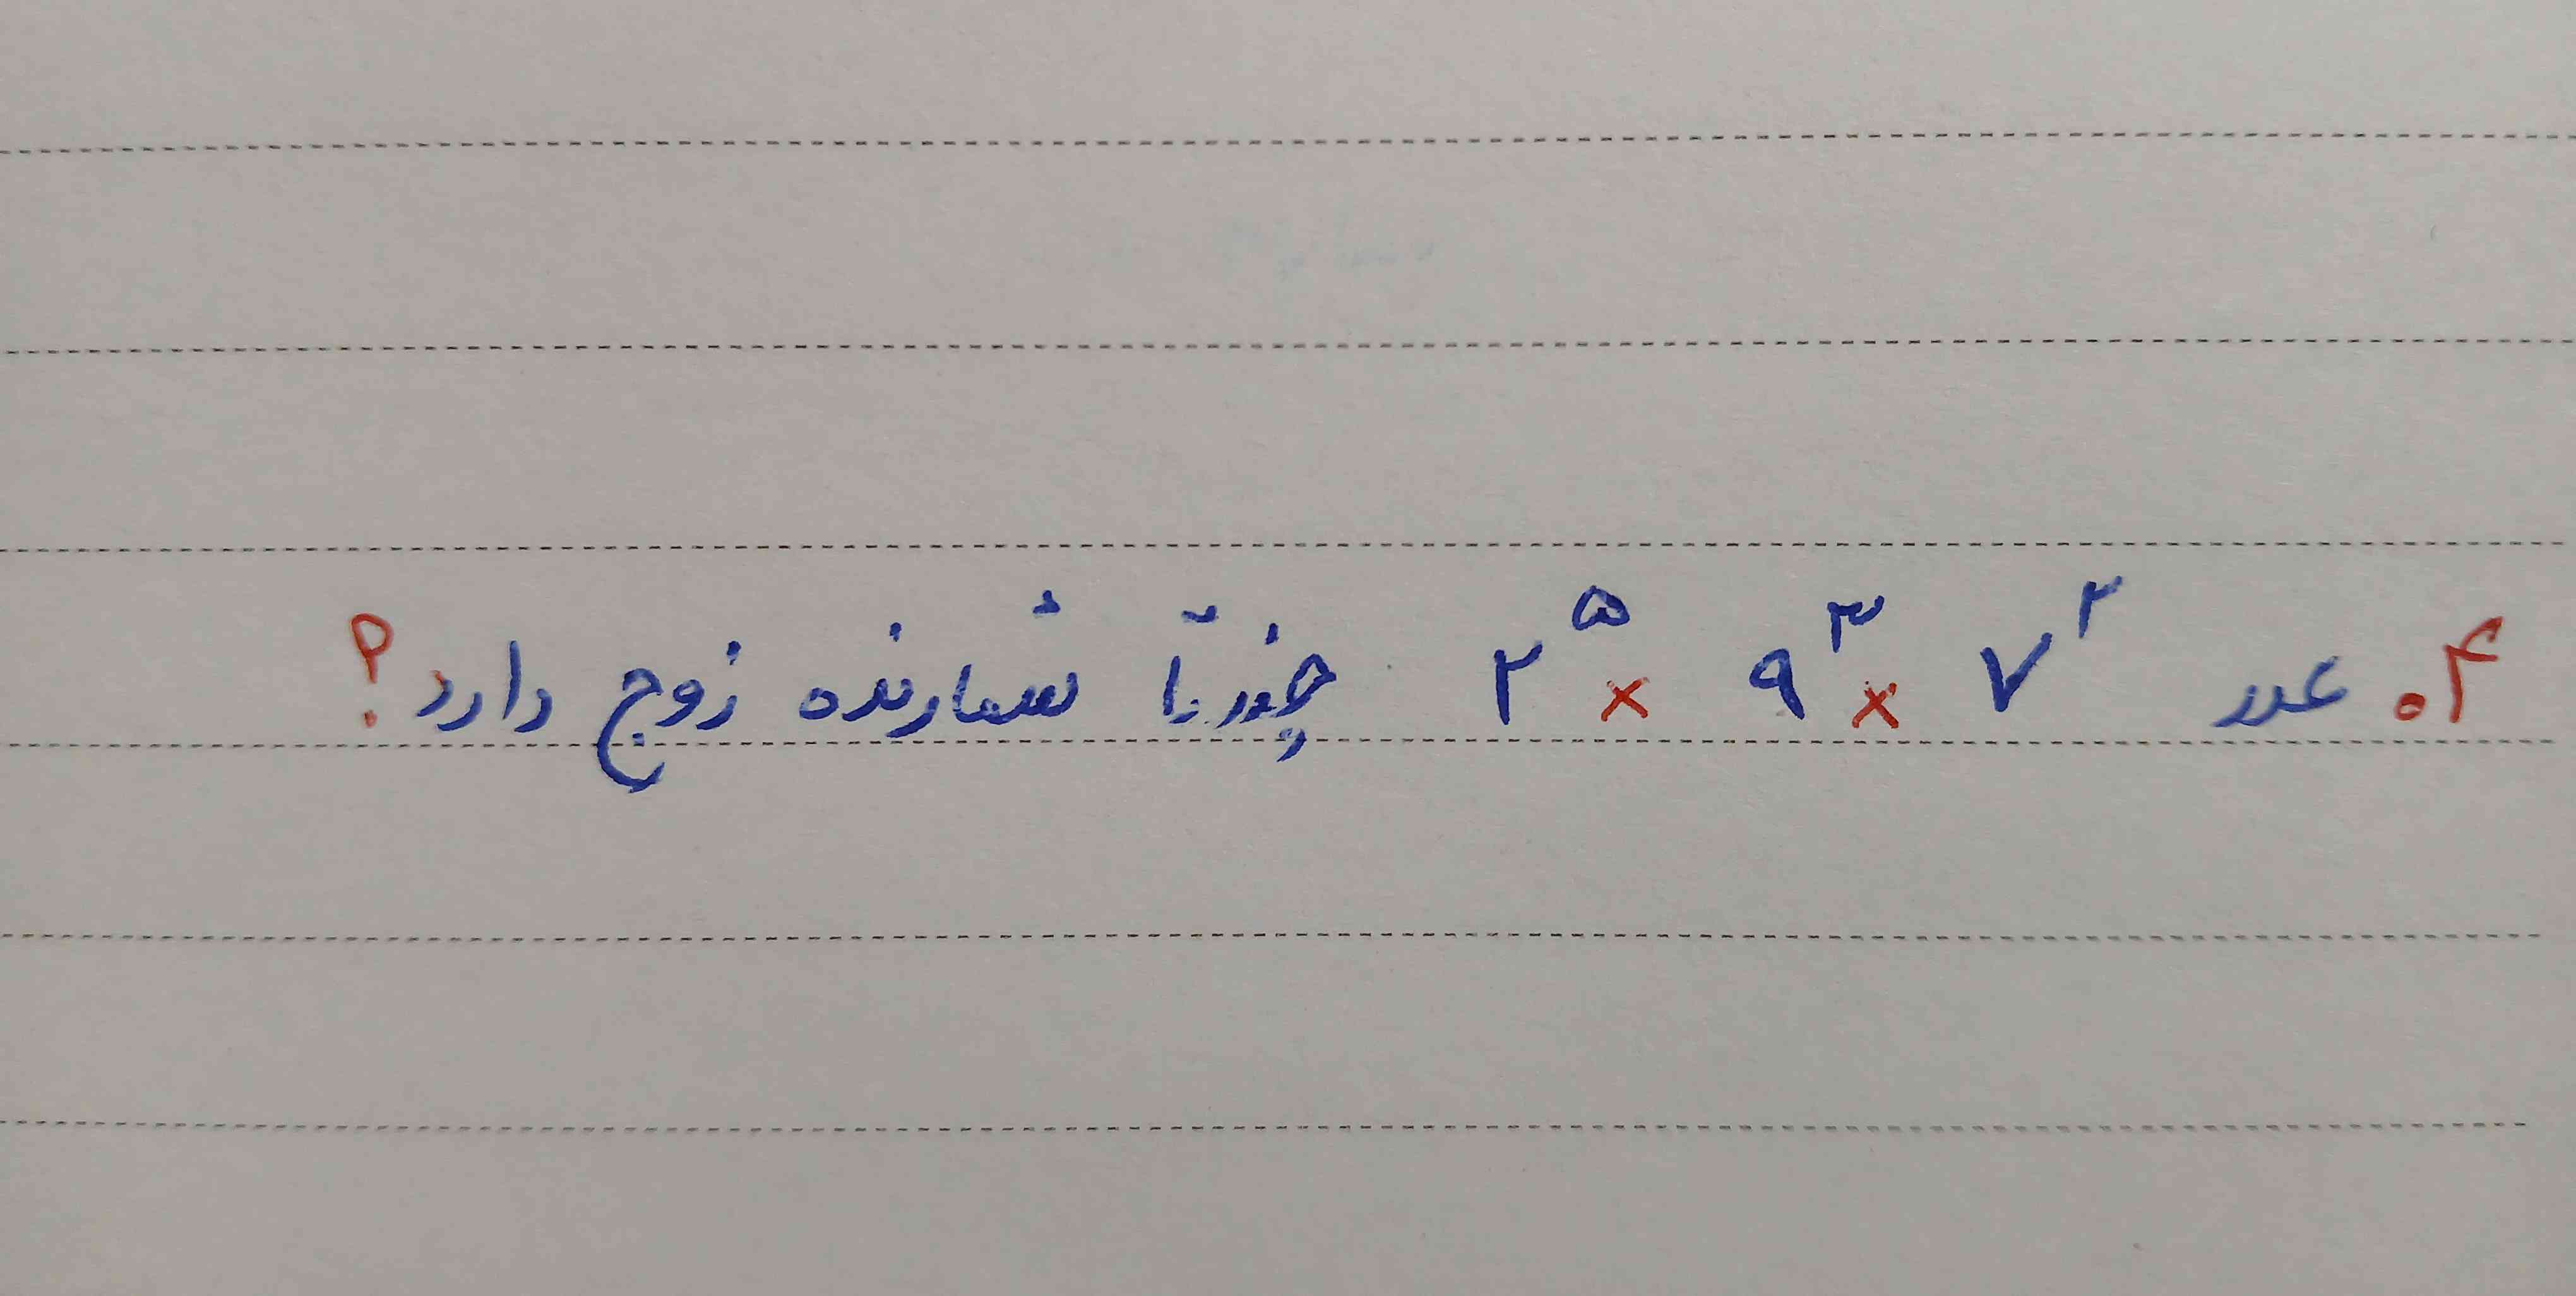 ۴. عدد ۲^۵ × ۹^۳ × ۷^۲ چندتا شمارنده زوج دارد؟